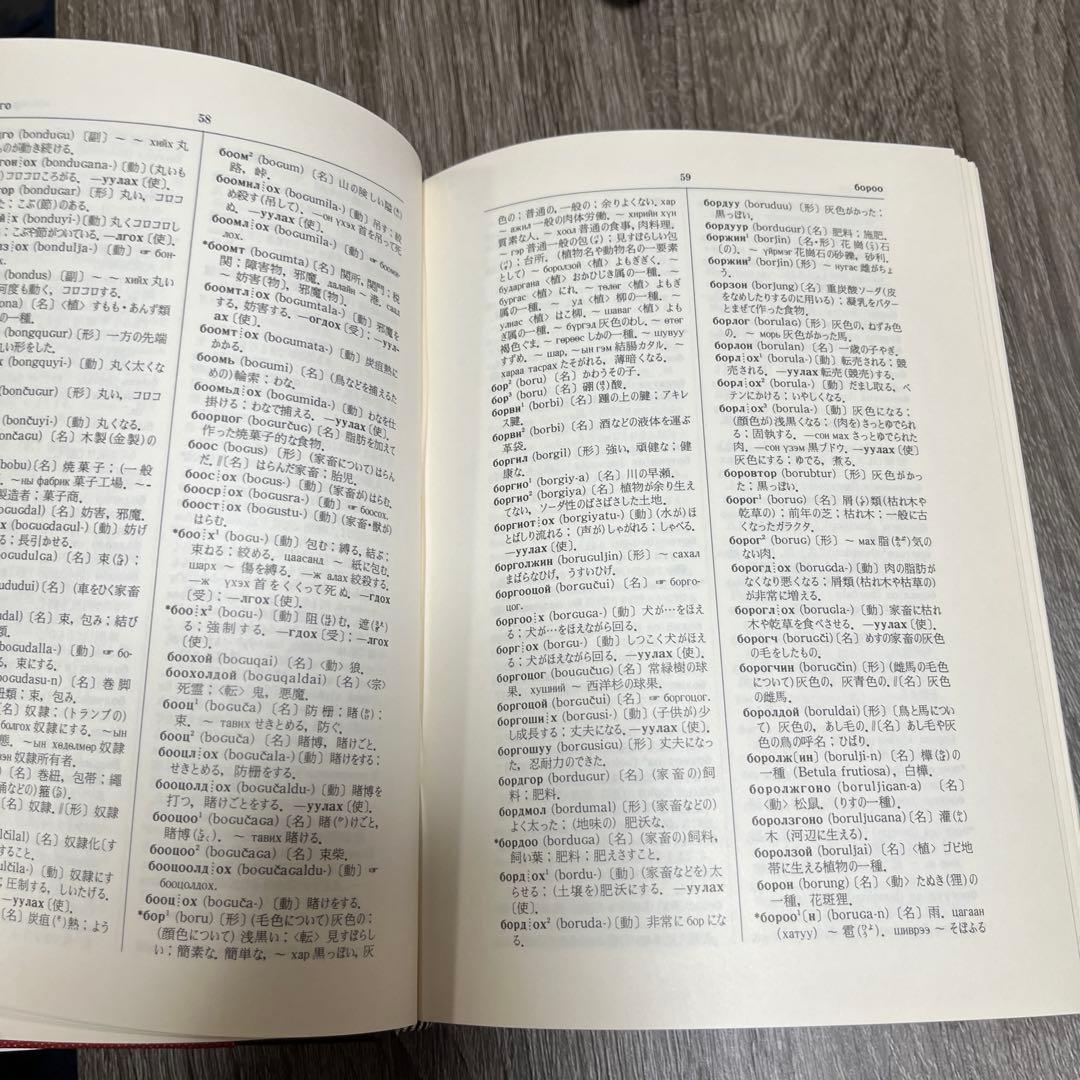 го
58
дго (bonduɢu) 〔副〕 ~ ~ хийх 丸
ものが動き続ける.
гон⁝ох (bonduɢana-) 〔動〕 (丸いも
コロコロころがる. —уулах 〔使〕.
гор (bonduɢar) 〔形〕 丸い, コロコ
; こぶ (節) のある.
⁝х (bonduyi-) 〔動〕 丸くコロコロし
; こぶや節がついている. —лгох 〔使〕.
лз⁝ох (bondulja-) 〔動〕 ☞ бон-
х.
(bondus) 〔名〕 ~ ~ хийх 丸い
何度も動く, コロコロする.
ona) 〔名〕 〈植〉 すもも・あんず類
の一種.
(bongquɢur) 〔形〕 一方の先端
い形をした.
х (bongquyi-) 〔動〕 丸く太くな
(bončuɢar) 〔形〕 丸い, コロコ
(bončuyi-) 〔動〕
ončaɢu) 〔名〕 木製 (金製) の
bobu) 〔名〕 焼菓子 ; (一般
~ны фабрик 菓子工場. ~-
製造者 ; 菓子商.
oɢuɢdal) 〔名〕 妨害, 邪魔.
ох (boɢuɢdaɢul-) 〔動〕 妨げ
; 長引かせる.
oɢudulɢa) 〔名〕 束 (たば) ;
ududui) 〔名〕 (車をひく家畜
udal) 〔名〕 束, 包み ; 結び
類.
oɢudalla-) 〔動〕 ☞ бо-
る, 束にする.
oɢudasu-n) 〔名〕 巻脚
紐類 ; 束, 包み.
〔名〕 奴隷 ; (トランプの)
болгох 奴隷にする. ~ын
態. ~ын хөдөлмөр 奴隷
зэн 奴隷所有者.
) 〔名〕 巻紐, 包帯 ; 縄
桶などの) 箍 (たが).
〔名〕 奴隷.〚〔形〕奴隷
ulčilal) 〔名〕 奴隷化〔す
すること.
ulčila-) 〔動〕 奴隷にす
; 圧制する, しいたげる.
〔使〕.
〔名〕 炭疽 (そ) 熱 ; よう
боом² (boɢum) 〔名〕 山の険しい隘 (あい)
路, 峠.
боомил⁝ох (boɢumila-) 〔動〕 吊す, 絞
め殺す (吊して). —он үхэх 首を吊って死
ぬ. —уулах 〔使〕.
боомл⁝ох (boɢumila-) 〔動〕 ☞ боомилох.
*боомт (boɢumta) 〔名〕 関所, 関門 ; 税
関 ; 障害物, 邪魔. далайн ~ 港. саад
~ 妨害〔物〕, 邪魔〔物〕.
боомтл⁝ох (boɢumtala-) 〔動〕 邪魔を
する, 妨害する. —огдох 〔受〕 ; —уул-
ах 〔使〕.
боомт⁝ох (boɢumata-) 〔動〕 炭疽熱に
かかる.
боомь (boɢumi) 〔名〕 (鳥などを捕えるた
めの) 輪索 ; わな.
боомьд⁝ох (boɢumida-) 〔動〕 わなを仕
掛ける ; わなで捕える. —уулах 〔使〕.
боорцог (boɢurčuɢ) 〔名〕 脂肪を加えて
作った焼菓子的な食物.
боос (boɢus) 〔形〕 (家畜について) はらん
だ.〚〔名〕はらんだ家畜 ; 胎児.
боос⁝ох (boɢus-) 〔動〕 (家畜が) はらむ.
бооср⁝ох (boɢusra-) 〔動〕 ☞ боосох.
боост⁝ох (boɢustu-) 〔動〕 (家畜・獣が)
はらむ.
*боо⁝х¹ (boɢu-) 〔動〕 包む ; 縛る, 結ぶ ;
束ねる ; 絞める. цаасанд ~ 紙に包む.
шарх ~ 傷を縛る. —ж алах 絞殺する.
—ж үхэх 首をくくって死ぬ. —гдох
〔受〕 ; —лгох 〔使〕.
*боо⁝х² (boɢu-) 〔動〕 阻 (はば) む, 遮 (さえぎ)
る ; 強制する. —гдох 〔受〕 ; —лгох
〔使〕.
боохой (boɢuqai) 〔名〕 〈動〉 狼.
боохолдой (boɢuqaldai) 〔名〕 〈宗〉
死霊 ; 〈転〉 鬼, 悪魔.
бооц¹ (boɢuča) 〔名〕 防柵 ; 賭 (かけ) ;
束. ~ тавих せきとめる, 防ぐ.
бооц² (boɢuča) 〔名〕 賭博, 賭けごと.
бооцл⁝ох (boɢučala-) 〔動〕 賭けをする ;
せきとめる, 防柵をする.
бооцолд⁝ох (boɢučaldu-) 〔動〕 賭博を
打つ, 賭けごとをする. —уулах 〔使〕.
бооцоо¹ (boɢučaɢa) 〔名〕 賭 (か) けごと,
賭博 (とばく). ~ тавих 賭ける.
бооцоо² (boɢučaɢa) 〔名〕 束柴.
бооцоолд⁝ох (boɢučaɢaldu-) 〔動〕 ☞
бооцолдох.
бооц⁝ох (boɢuča-) 〔動〕 賭けをする.
*бор¹ (boru) 〔形〕 (毛色について) 灰色の ;
(顔色について) 浅黒い ; 〈転〉 見すぼらし
い ; 簡素な. 簡単な, ~ хар 黒っぽい, 灰
59
бороо
色の ; 普通の, 一般の ; 余りよくない. хар
~ ажил 一般の肉体労働. ~ хирийн хүн
質素な人. ~ хоол 普通の食事, 肉料理.
~ гэр 普通一般の包 (パオ) ; 見すぼらしい包
(パオ) ; 台所. (植物名や動物名の一要素
として) ~ боролзой 〈植〉 よもぎぎく. ~
бударгана 〈植〉 にれ. ~ төлөг 〈植〉 よもぎ
属の一種. ~ уд 〈植〉 柳の一種. ~
улиас 〈植〉 はこ柳. ~ шаваг 〈植〉 よも
ぎ属の一種. ~ бүргэд 灰色のわし. ~ өтөг
褐色ぐま. ~ гөрөөс しかの一種. ~ шувуу
すずめ. ~ шар, ~ ын гэм 結腸カタル. ~
хараа тасрах たそがれる, 薄暗くなる.
бор² (boru) 〔名〕 かわうその子.
бор³ (boru) 〔名〕 硼 (ほう) 酸.
борви¹ (borbi) 〔名〕 踵の上の腱 ; アキレ
ス腱.
борви² (borbi) 〔名〕 酒などの液体を運ぶ
革袋.
боргил (borgil) 〔形〕 強い, 頑健な ; 健
康な.
боргио¹ (borgiy-a) 〔名〕 川の早瀬.
боргио² (borgiya) 〔名〕 植物が余り生え
てない, ソーダ性のぱさぱさした土地.
боргиот⁝ох (borgiyatu-) 〔動〕 (水が) ほ
とばしり流れる ; (声が) しゃがれる ; しゃべる.
—уулах 〔使〕.
борголжин (boruɢuljin) 〔形〕 ~ сахал
まばらなひげ, うすいひげ.
боргооцой (borɢučui) 〔名〕 ☞ борго-
цог.
боргоо⁝х (borɢuɢa-) 〔動〕 犬が…をほえ
る ; 犬が…をほえながら回る.
борг⁝ох (borɢu-) 〔動〕 しつこく犬がほえ
る ; 犬がほえながら回る. —уулах 〔使〕.
боргоцог (bouɢučuɢ) 〔名〕 常緑樹の球
果. хушний ~ 西洋杉の球果.
боргоцой (borɢučui) 〔名〕 ☞ боргоцог.
боргоши⁝х (borɢusi-) 〔動〕 (子供が) 少
し成長する ; 丈夫になる. —уулах 〔使〕.
боргошуу (borɢusiɢu) 〔形〕 丈夫になっ
た, 忍耐力のできた.
бордгор (borduɢur) 〔名〕 (家畜の) 飼
料 ; 肥料.
бордмол (bordumal) 〔形〕 (家畜などの)
よく太った ; (地味の) 肥沃な.
*бордоо (borduɢa) 〔名〕 (家畜の) 飼料,
飼い葉 ; 肥料 ; 肥えさすこと.
борд⁝ох¹ (bordu-) 〔動〕 (家畜などを) 太
らせる ; (土壌を) 肥沃にする. —уулах
〔使〕.
борд⁝ох² (boruda-) 〔動〕 非常に бор にな
る.
бордуу (boruduu) 〔形〕 灰色がかった ;
黒っぽい.
бордуур (borduɢur) 〔名〕 肥料 ; 施肥.
боржин¹ (borjin) 〔名・形〕 花崗 (こう) 石
〔の〕. ~ үйрмэг 花崗石の砂礫, 砂利.
боржин² (borjin) 〔形〕 ~ нугас 雌がちょ
う.
борзон (borjung) 〔名〕 重炭酸ソーダ (皮
をなめしたりするのに用いる) ; 凝乳をバター
とまぜて作った食物.
борлог (borulaɢ) 〔形〕 灰色の, ねずみ色
の. ~ морь 灰色がかった馬.
борлон (borulan) 〔名〕 一歳の子やぎ.
борл⁝ох¹ (borula-) 〔動〕 転売される ; 競
売される. —уулах 転売 (競売) する.
борл⁝ох² (borula-) 〔動〕 だまし取る, ペ
テンにかける ; いやしくなる.
борл⁝ох³ (borula-) 〔動〕 灰色になる ;
(顔色が) 浅黒くなる ; (肉を) さっとゆでられ
る ; 固執する. —сон мах さっとゆでられた
肉. —сон үзэм 黒ブドウ. —уулах 〔使〕
灰色にする ; ゆでる, 煮る.
боровтор (borubtur) 〔形〕 灰色がかっ
た ; 黒っぽい.
борог¹ (boruɢ) 〔名〕 屑 (くず) 類 (枯れ木や
乾草の) ; 前年の芝 ; 枯れ木 ; 一般に古
くなったガラクタ.
борог² (boruɢ) 〔形〕 ~ мах 脂 (あぶら) 気の
ない肉.
борогд⁝ох (boruɢda-) 〔動〕 肉の脂肪が
なくなり悪くなる ; 屑類 (枯れ木や枯草の)
が非常に増える.
борогл⁝ох (boruɢla-) 〔動〕 家畜に枯れ
木や乾草を食べさせる. —уулах 〔使〕.
борогч (boruɢči) 〔名〕 めすの家畜の灰色
の毛をしたもの.
борогчин (boruɢčin) 〔形〕 (雌馬の毛色
について) 灰色の, 灰青色の.〚〔名〕灰色
の雌馬.
боролдой (boruldai) 〔形〕 (鳥と馬につ
いて) 灰色の, あし毛の.〚〔名〕あし毛や灰
色の鳥の呼名 ; ひばり.
боролж[ин] (borulji-n) 〔名〕 樺 (かば) の
一種 (Betula frutiosa), 白樺.
боролжгоно (boruljigan-a) 〔名〕
〈動〉 松鼠. (りすの一種).
боролзгоно (boruljuɢana) 〔名〕 灌 (かん)
木 (河辺に生える).
боролзой (boruljai) 〔名〕 〈植〉 ゴビ地
帯に生える植物の一種.
борон (borung) 〔名〕 〈動〉 たぬき (狸) の
一種, 花斑狸.
*бороо¹[н] (boruɢa-n) 〔名〕 雨. цагаан
(хатуу) ~ 雹 (ひょう). шиврээ ~ そぼふる